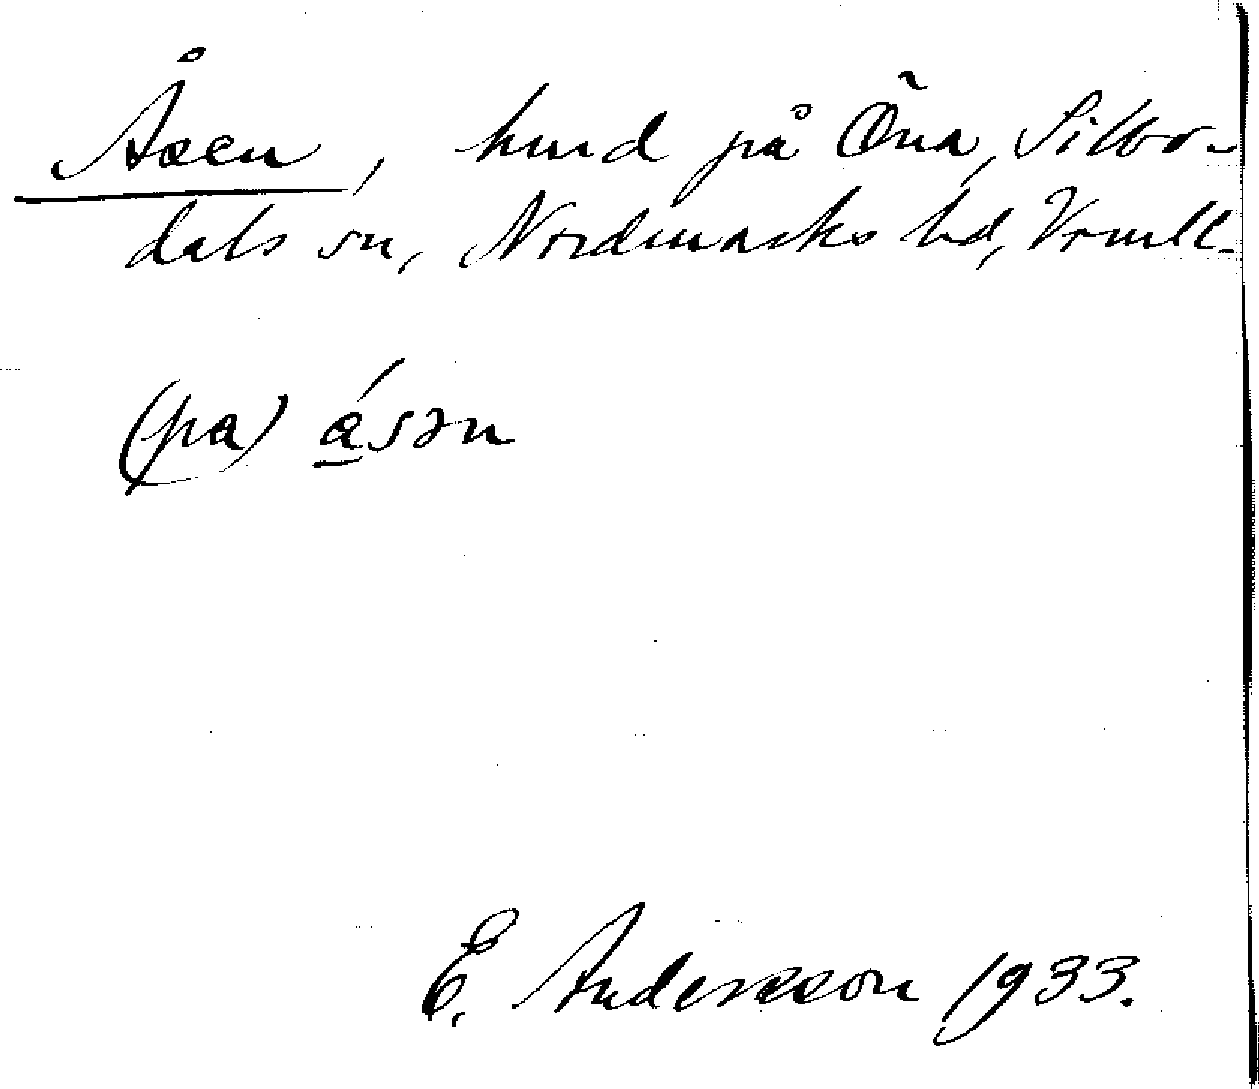 Åsen, hmd på Öna, Silbo-
dals sn, Nordmarks hd, Vrmll.
(pa) ásən
E. Andersson 1933.